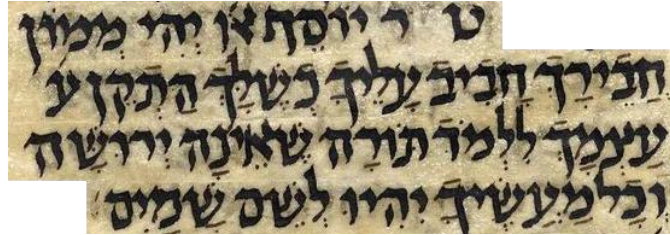 ט ר יוסה או יהי ממון
חבירך חביב עליך כשלך התקן ע
עצמך ללמד תורה שאינה ירושה
וכל מעשיך יהיו לשם שמים